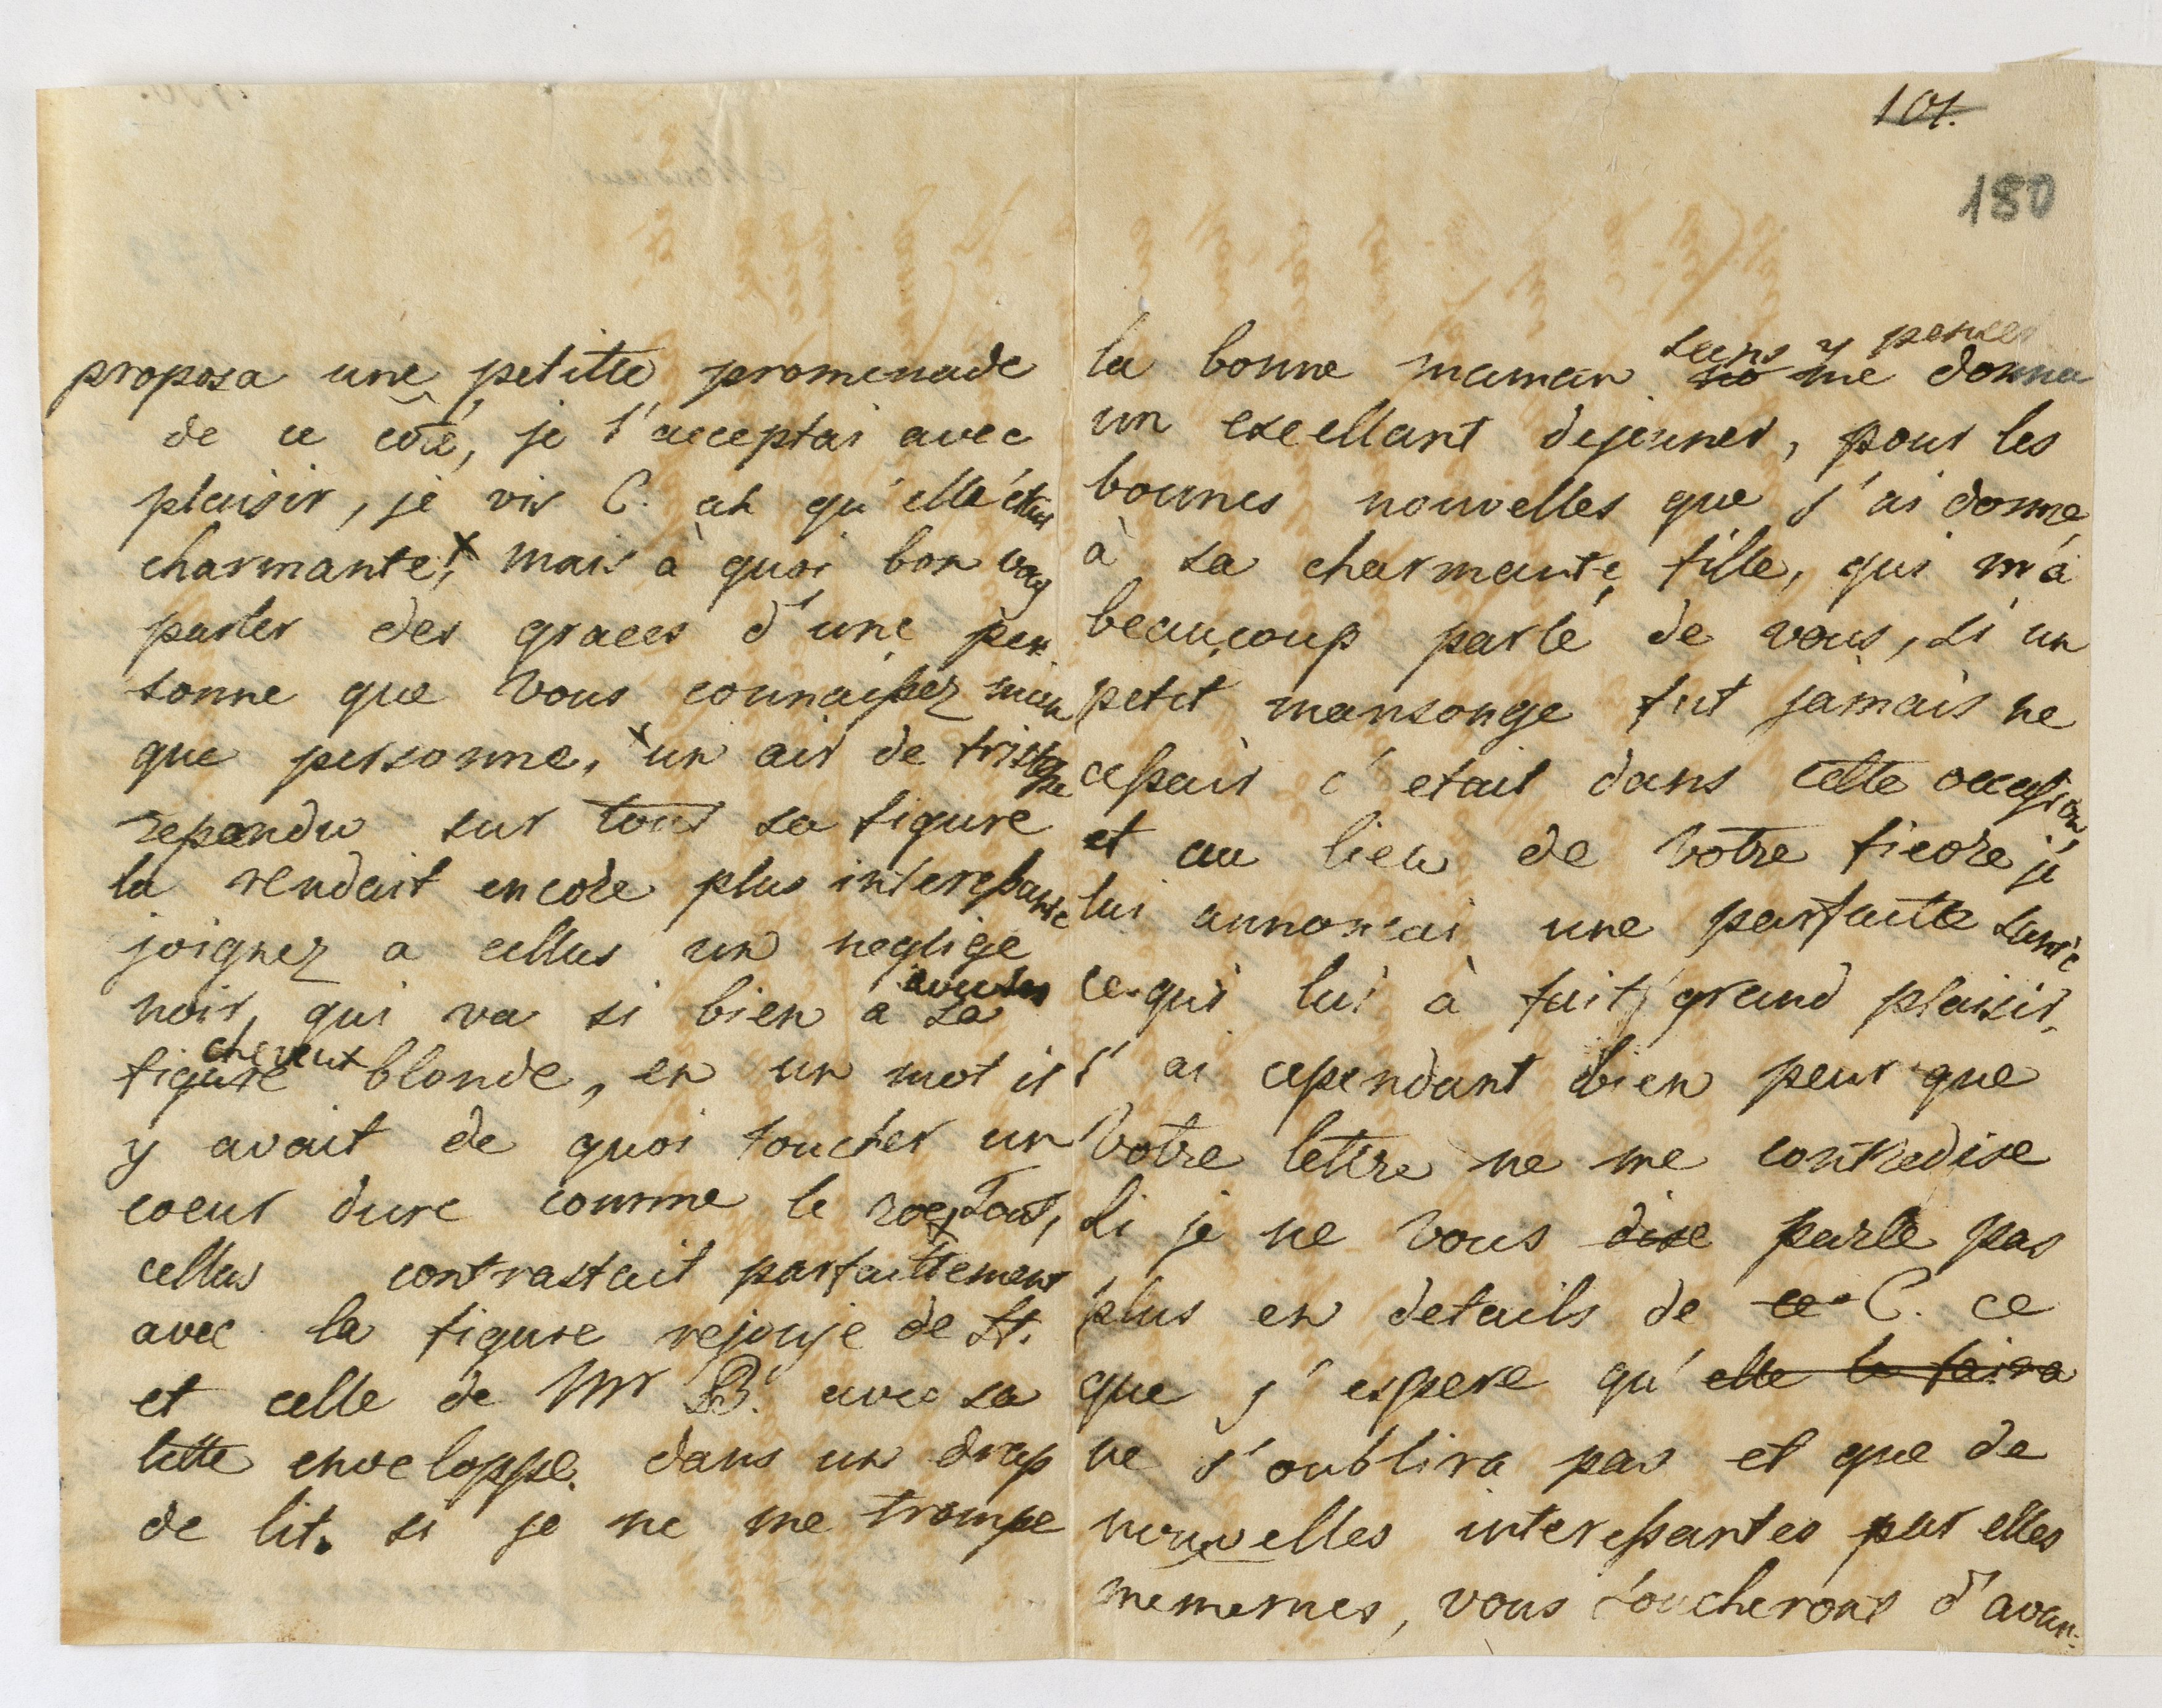 proposa une petitte promenade
de ce côté, je l'acceptai avec
plaisir, je vis C. ah qu'elle était
charmante! x mais à quoi bon vous
parler des graces d'une per-
sonne que vous connaissez mieux
que personne, x un air de tristesse
repandu sur tout sa figure
la rendait encore plus interessante
joignez a cellas un neglige
noir, qui va si bien a sa
avec ses
cheveux
figure blonde, en un mot il
y avait de quoi toucher un
coeur dure comme le roc, Tout,
cellas contrastait parfaittement
avec la figure rejouje de St.
et celle de Mr B. avec sa
tette enveloppe. dans un drap
de lit. si je ne me trompe
101.
180
sans y penser
la bonne maman me donna
un exellant dejeuner, pour les
bonnes nouvelles que j'ai donne
à sa charmante fille, qui m'à
beaucoup parlé de vous, si un
petit mansonge fut jamais ne
cessair c'etait dans cette occassion,
et au lieu de votre fievre je
lui annoncai une parfaitte santé
ce qui lui à fait grand plaisir,
j'ai cependant bien peur que
votre lettre ne me contredise
si je ne vous dise parle pas
plus en details de ce C. ce
que j'espere qu'elle le faira
ne s'oublira pas et que de
nouvelles interessantes par elles
mememes, vous toucheront d'avan-